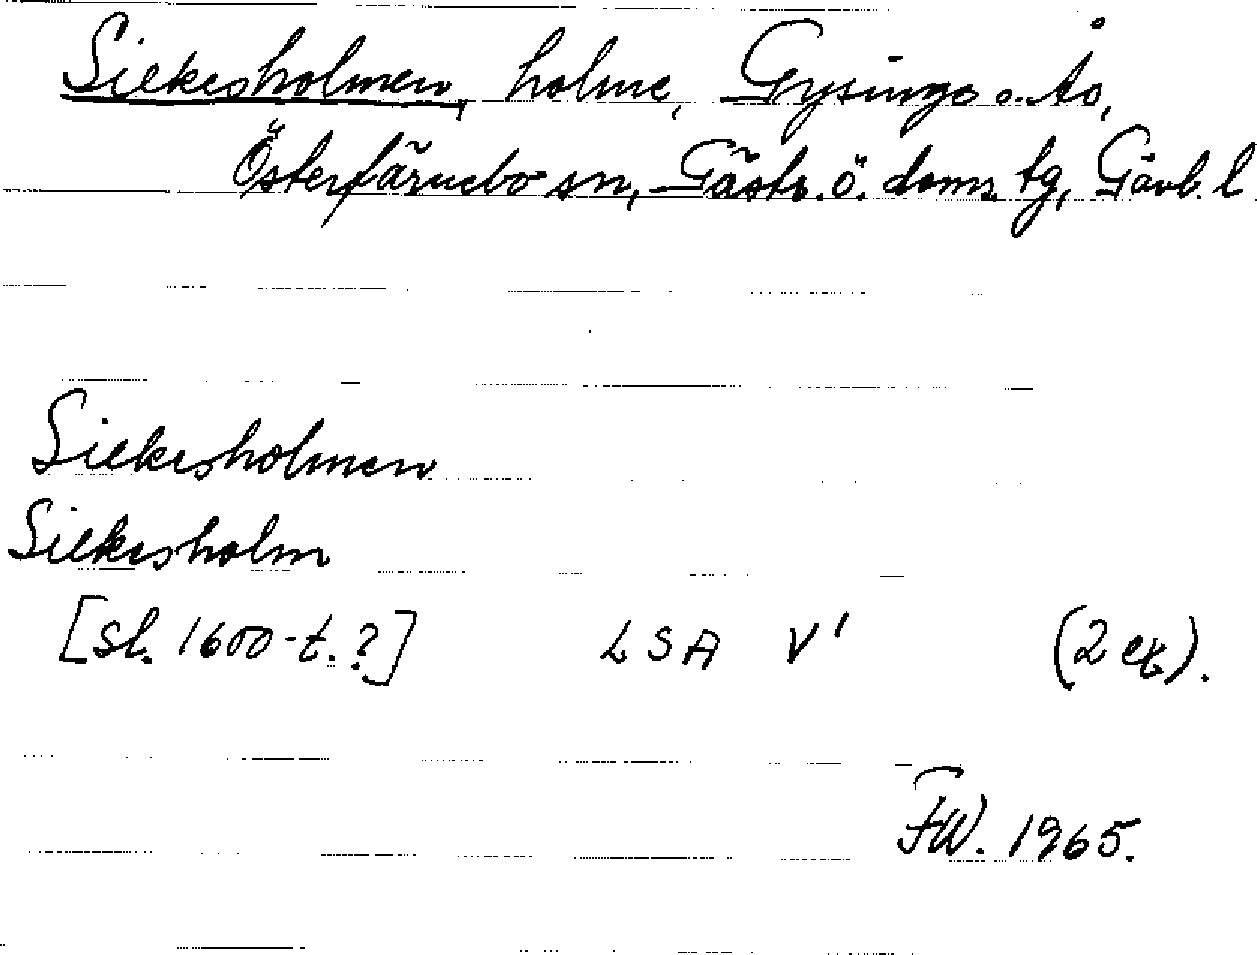 Siekesholmen, holme, Gysinge o. Åo,
Österfärnebo sn, Gästr. ö. doms. tg, Gävleb. l
Siekesholmen
Siekesholm
[sl. 1600-t.?] LSA V' (2 ex).
FW. 1965.